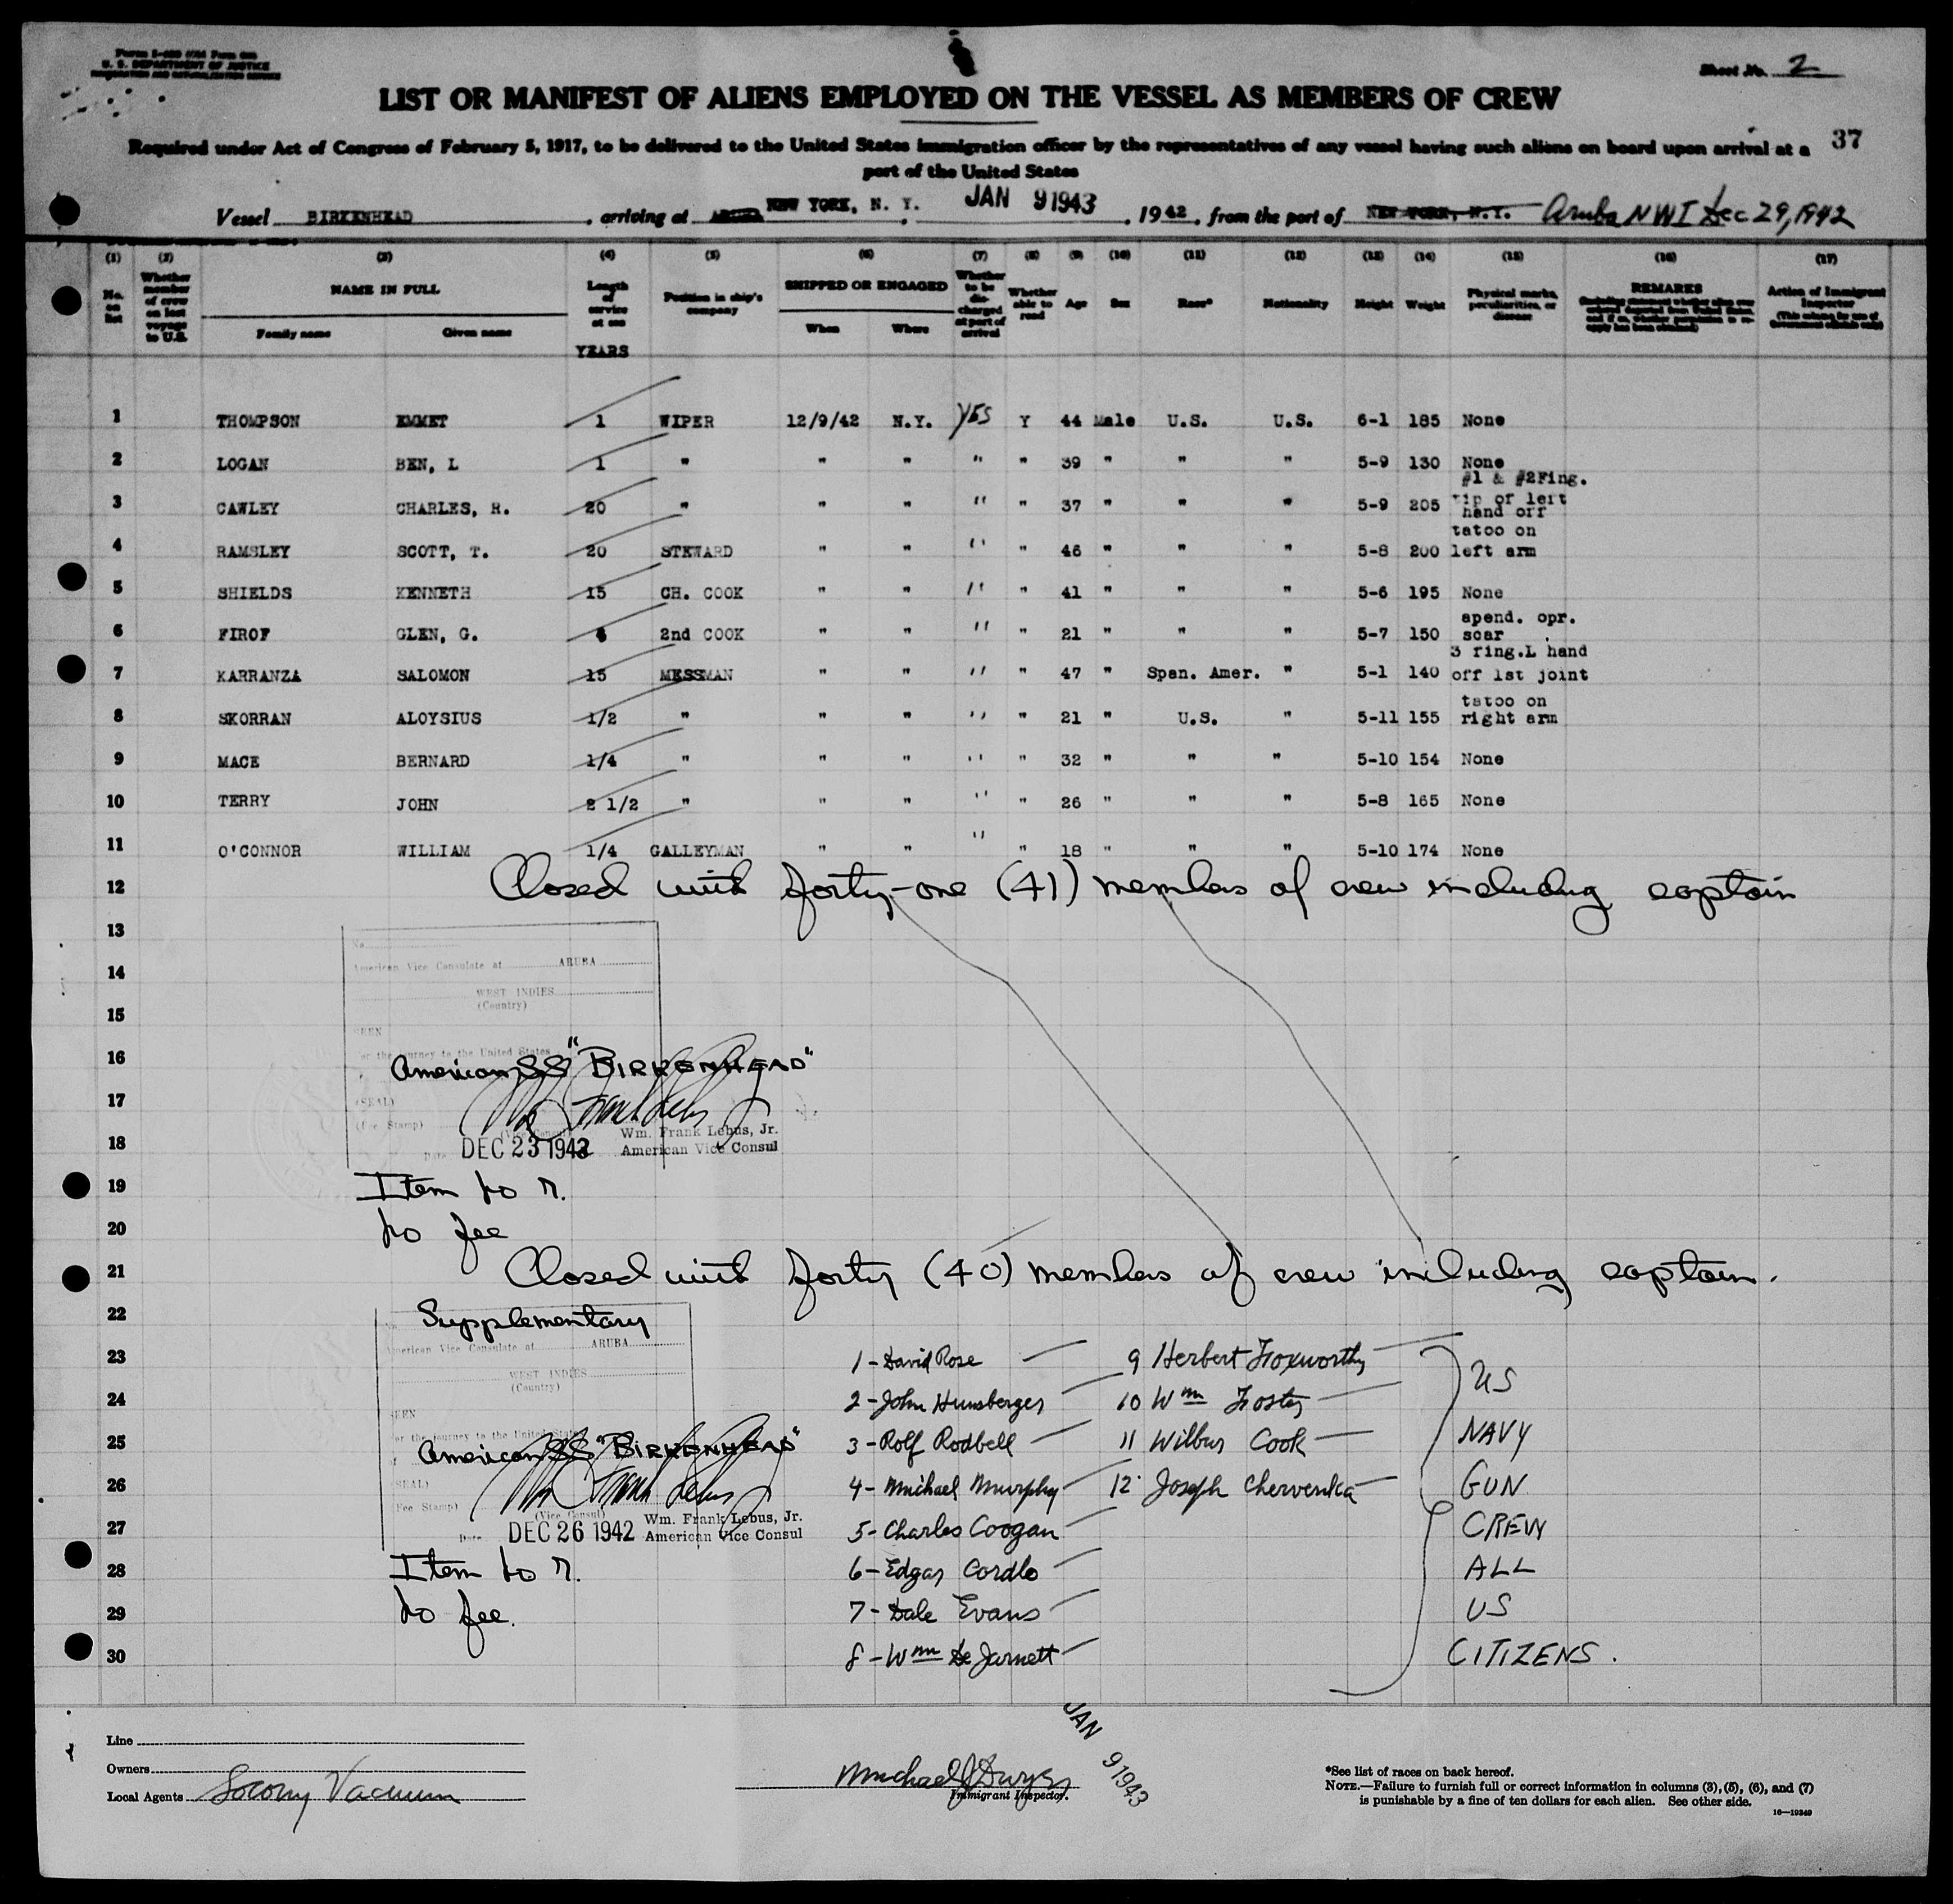 U. S. DEPARTMENT OF JUSTICE
IMMIGRATION AND NATURALIZATION SERVICE
Sheet No. 2
LIST OR MANIFEST OF ALIENS EMPLOYED ON THE VESSEL AS MEMBERS OF CREW
Required under Act of Congress of February 5, 1917, to be delivered to the United States immigration officer by the representatives of any vessel having such aliens on board upon arrival at a
37
port of the United States
Vessel BIRKENHEAD, arriving at ARUBA NEW YORK, N. Y. JAN 9 1943, 1942, from the port of NEW YORK, N.Y. Aruba NWI Dec 29, 1942
(1) (2) (3) (4) (5) (6) (7) (8) (9) (10) (11) (12) (13) (14) (15) (16) (17)
No. on list
Whether member of crew on last voyage to U.S.
NAME IN FULL
Family name Given name
Length of service at sea
YEARS
Position in ship's company
SHIPPED OR ENGAGED
When Where
Whether to be discharged at port of arrival
Whether able to read
Age
Sex
Race*
Nationality
Height
Weight
Physical marks, peculiarities, or disease
REMARKS
Action of Immigrant Inspector
1 THOMPSON EMMET 1 WIPER 12/9/42 N.Y. YES Y 44 Male U.S. U.S. 6-1 185 None
2 LOGAN BEN, L 1 " " " " " 39 " " " 5-9 130 None
3 CAWLEY CHARLES, R. 20 " " " " " 37 " " " 5-9 205 #1 & #2Fing. tip of left hand off
4 RAMSLEY SCOTT, T. 20 STEWARD " " " " 46 " " " 5-8 200 tatoo on left arm
5 SHIELDS KENNETH 15 CH. COOK " " " " 41 " " " 5-6 195 None
6 FIROF GLEN, G. 2nd COOK " " " " 21 " " " 5-7 150 apend. opr. scar
7 KARRANZA SALOMON 15 MESSMAN " " " " 47 " Span. Amer. " 5-1 140 3 ring.L hand off 1st joint
8 SKORRAN ALOYSIUS 1/2 " " " " " 21 " U.S. " 5-11 155 tatoo on right arm
9 MACE BERNARD 1/4 " " " " " 32 " " " 5-10 154 None
10 TERRY JOHN 2 1/2 " " " " " 26 " " " 5-8 165 None
11 O'CONNOR WILLIAM 1/4 GALLEYMAN " " " " 18 " " " 5-10 174 None
12 Closed with forty-one (41) members of crew including captain
13
14
15
16
17
18
19
20
No.
American Vice Consulate at ARUBA
WEST INDIES
(Country)
SEEN
For the journey to the United States
American SS "BIRKENHEAD"
(SEAL)
(Fee Stamp)
(Vice Consul)
Wm. Frank Lebus, Jr.
Date DEC 23 1942 American Vice Consul
Item No 7.
No fee
21 Closed with forty (40) members of crew including captain.
22
23
24
25
26
27
28
29
30
Supplementary
American Vice Consulate at ARUBA
WEST INDIES
(Country)
SEEN
For the journey to the United States
American SS "BIRKENHEAD"
(SEAL)
(Fee Stamp)
(Vice Consul)
Wm. Frank Lebus, Jr.
Date DEC 26 1942 American Vice Consul
Item No 7.
No fee.
1 - David Rose
2 - John Hunsberger
3 - Rolf Rodbell
4 - Michael Murphy
5 - Charles Coogan
6 - Edgar Cordle
7 - Dale Evans
8 - Wm De Jarnett
9 Herbert Foxworthy
10 Wm Foster
11 Wilbur Cook
12 Joseph Chervenka
US
NAVY
GUN
CREW
ALL
US
CITIZENS.
Line
Owners
Local Agents Socony Vacuum
Michael J Dwyer
Immigrant Inspector.
JAN 9 1943
*See list of races on back hereof.
NOTE.—Failure to furnish full or correct information in columns (3), (5), (6), and (7)
is punishable by a fine of ten dollars for each alien. See other side.
16—19340